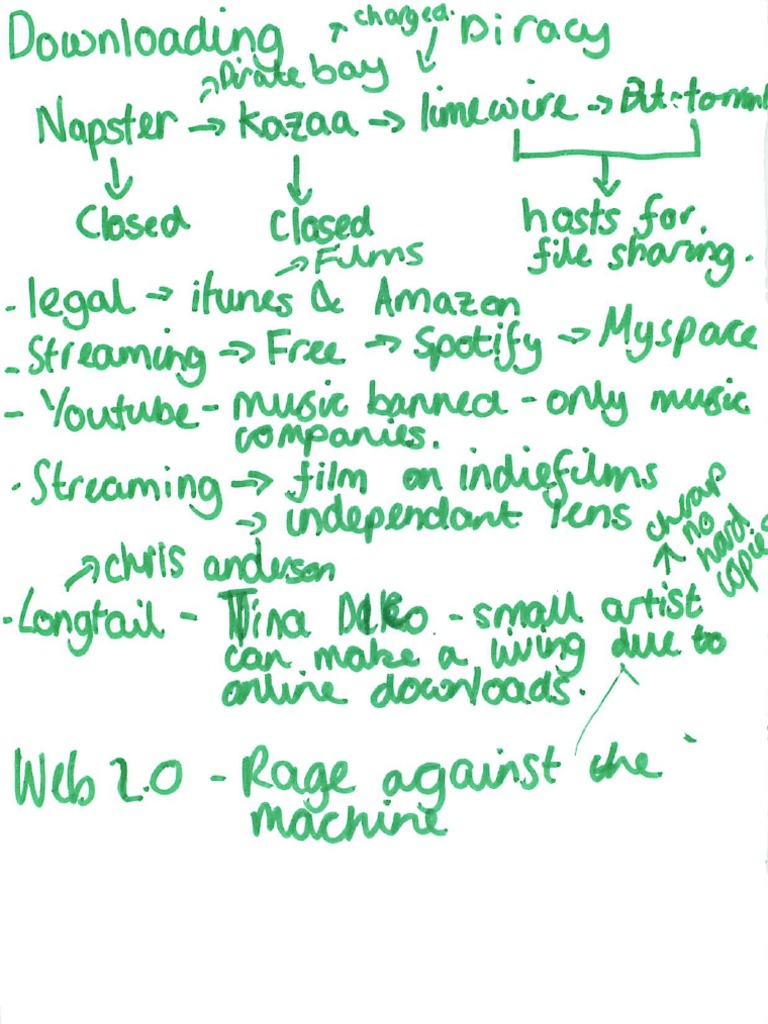 Downloading ↗ charged. ↓ Piracy
↗ Pirate bay
Napster → Kazaa → limewire → Bit:torrent
↓ ↓ ↓
Closed Closed hosts for.
file sharing.
↗ Films
- legal → itunes & Amazon
- Streaming → Free → Spotify → Myspace
- Youtube - music banned - only music
companies.
- Streaming → film on indiefilms
→ independant lens
↗ cheap no hard copies
↗ chris anderson
- Longtail - Nina - small artist
can make a living due to
online downloads.
Web 2.0 - Rage against the
machine